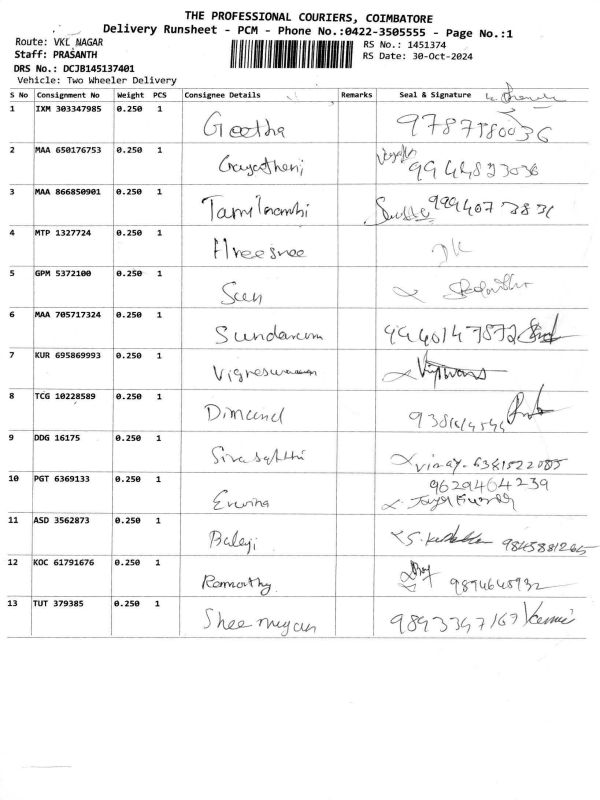 THE PROFESSIONAL COURIERS, COIMBATORE
Delivery Runsheet - PCM - Phone No.:0422-3505555 - Page No.:1
Route: VKL NAGAR
RS No.: 1451374
Staff: PRASANTH
RS Date: 30-Oct-2024
DRS No.: DCJB145137401
Vehicle: Two Wheeler Delivery
S No Consignment No Weight PCS Consignee Details Remarks Seal & Signature
1 IXM 303347985 0.250 1 Geetha
2 MAA 650176753 0.250 1 Gayatheni
3 MAA 866850901 0.250 1 Tamilnambi
4 MTP 1327724 0.250 1 Hreesnee
5 GPM 5372100 0.250 1 Sen
6 MAA 705717324 0.250 1 Sundaram 9940147872
7 KUR 695869993 0.250 1 Vigneswaran
8 TCG 10228589 0.250 1 Dimand
9 DDG 16175 0.250 1 Sivasakthi vinay. 6381522085
10 PGT 6369133 0.250 1 9629464239
11 ASD 3562873 0.250 1 Balaji 9845881265
12 KOC 61791676 0.250 1 Ramoorthy 9894648932
13 TUT 379385 0.250 1 9893347167